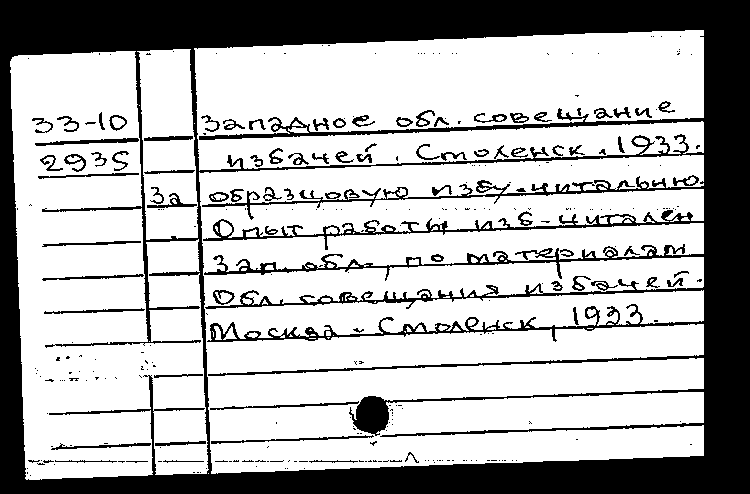 33-10 Западное обл. совещание
2935 избачей. Смоленск. 1933.
За образцовую избу-читальню.
Опыт работы изб-читален
Зап. обл., по материалам
Обл. совещания избачей.
Москва - Смоленск, 1933.